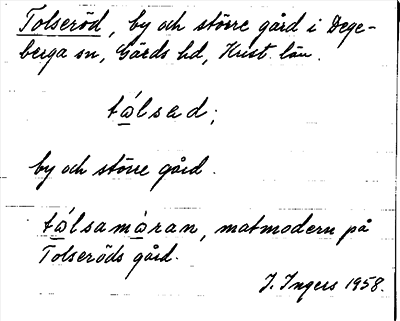 Tolseröd, by och större gård i Dege-
berga sn, Gärds hd, Krist. län.
tώlsad;
by och större gård.
tώlsamὼran, matmodern på
Tolseröds gård.
J. Ingers 1958.